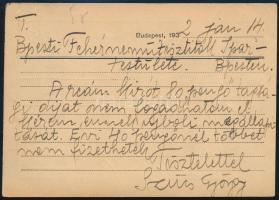 T.
Budapest, 1932 jan 14.
Bpesti Fehérneműtisztító Ipar-
testülete. Bpesten.
A reám kirót 80 pengő tagsá-
gi díjat nem fogadhatom el,
kérem, ennek újboli megállapí-
tását. Évi 40 pengőnél többet
nem fizethetek
Tisztelettel
Szűcs György